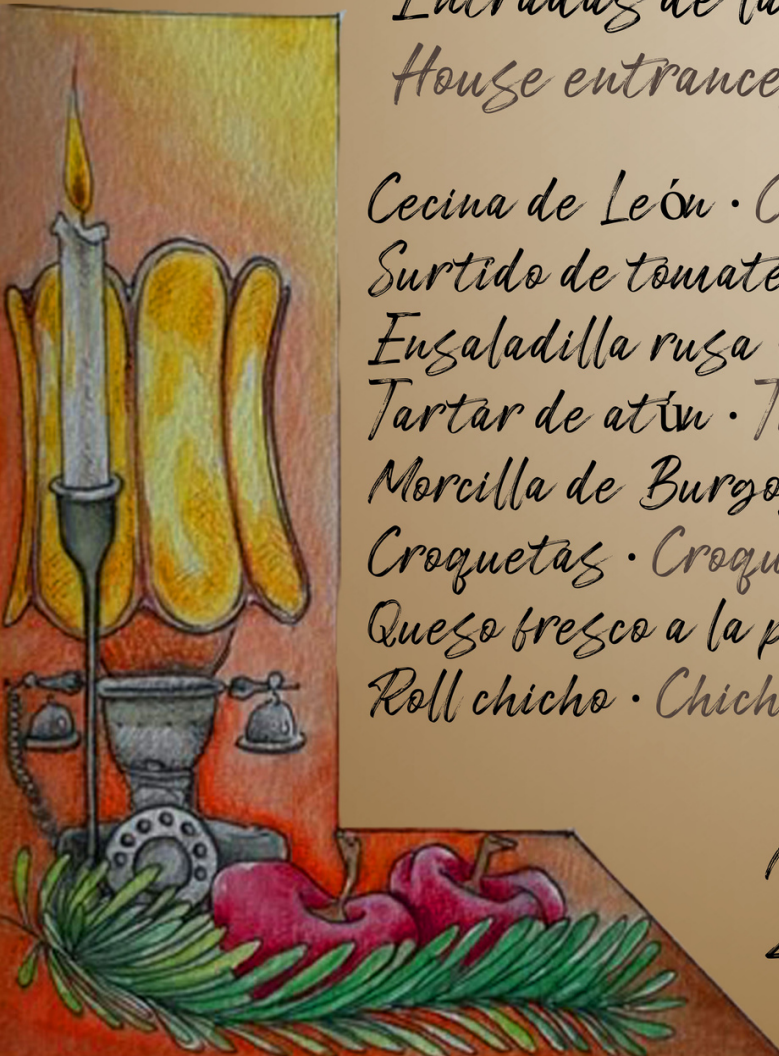 Entradas de la
House entrance
Cecina de León ·
Surtido de tomate
Ensaladilla rusa
Tartar de atún ·
Morcilla de Burgo
Croquetas · Croqu
Queso fresco a la p
Roll chicho · Chich